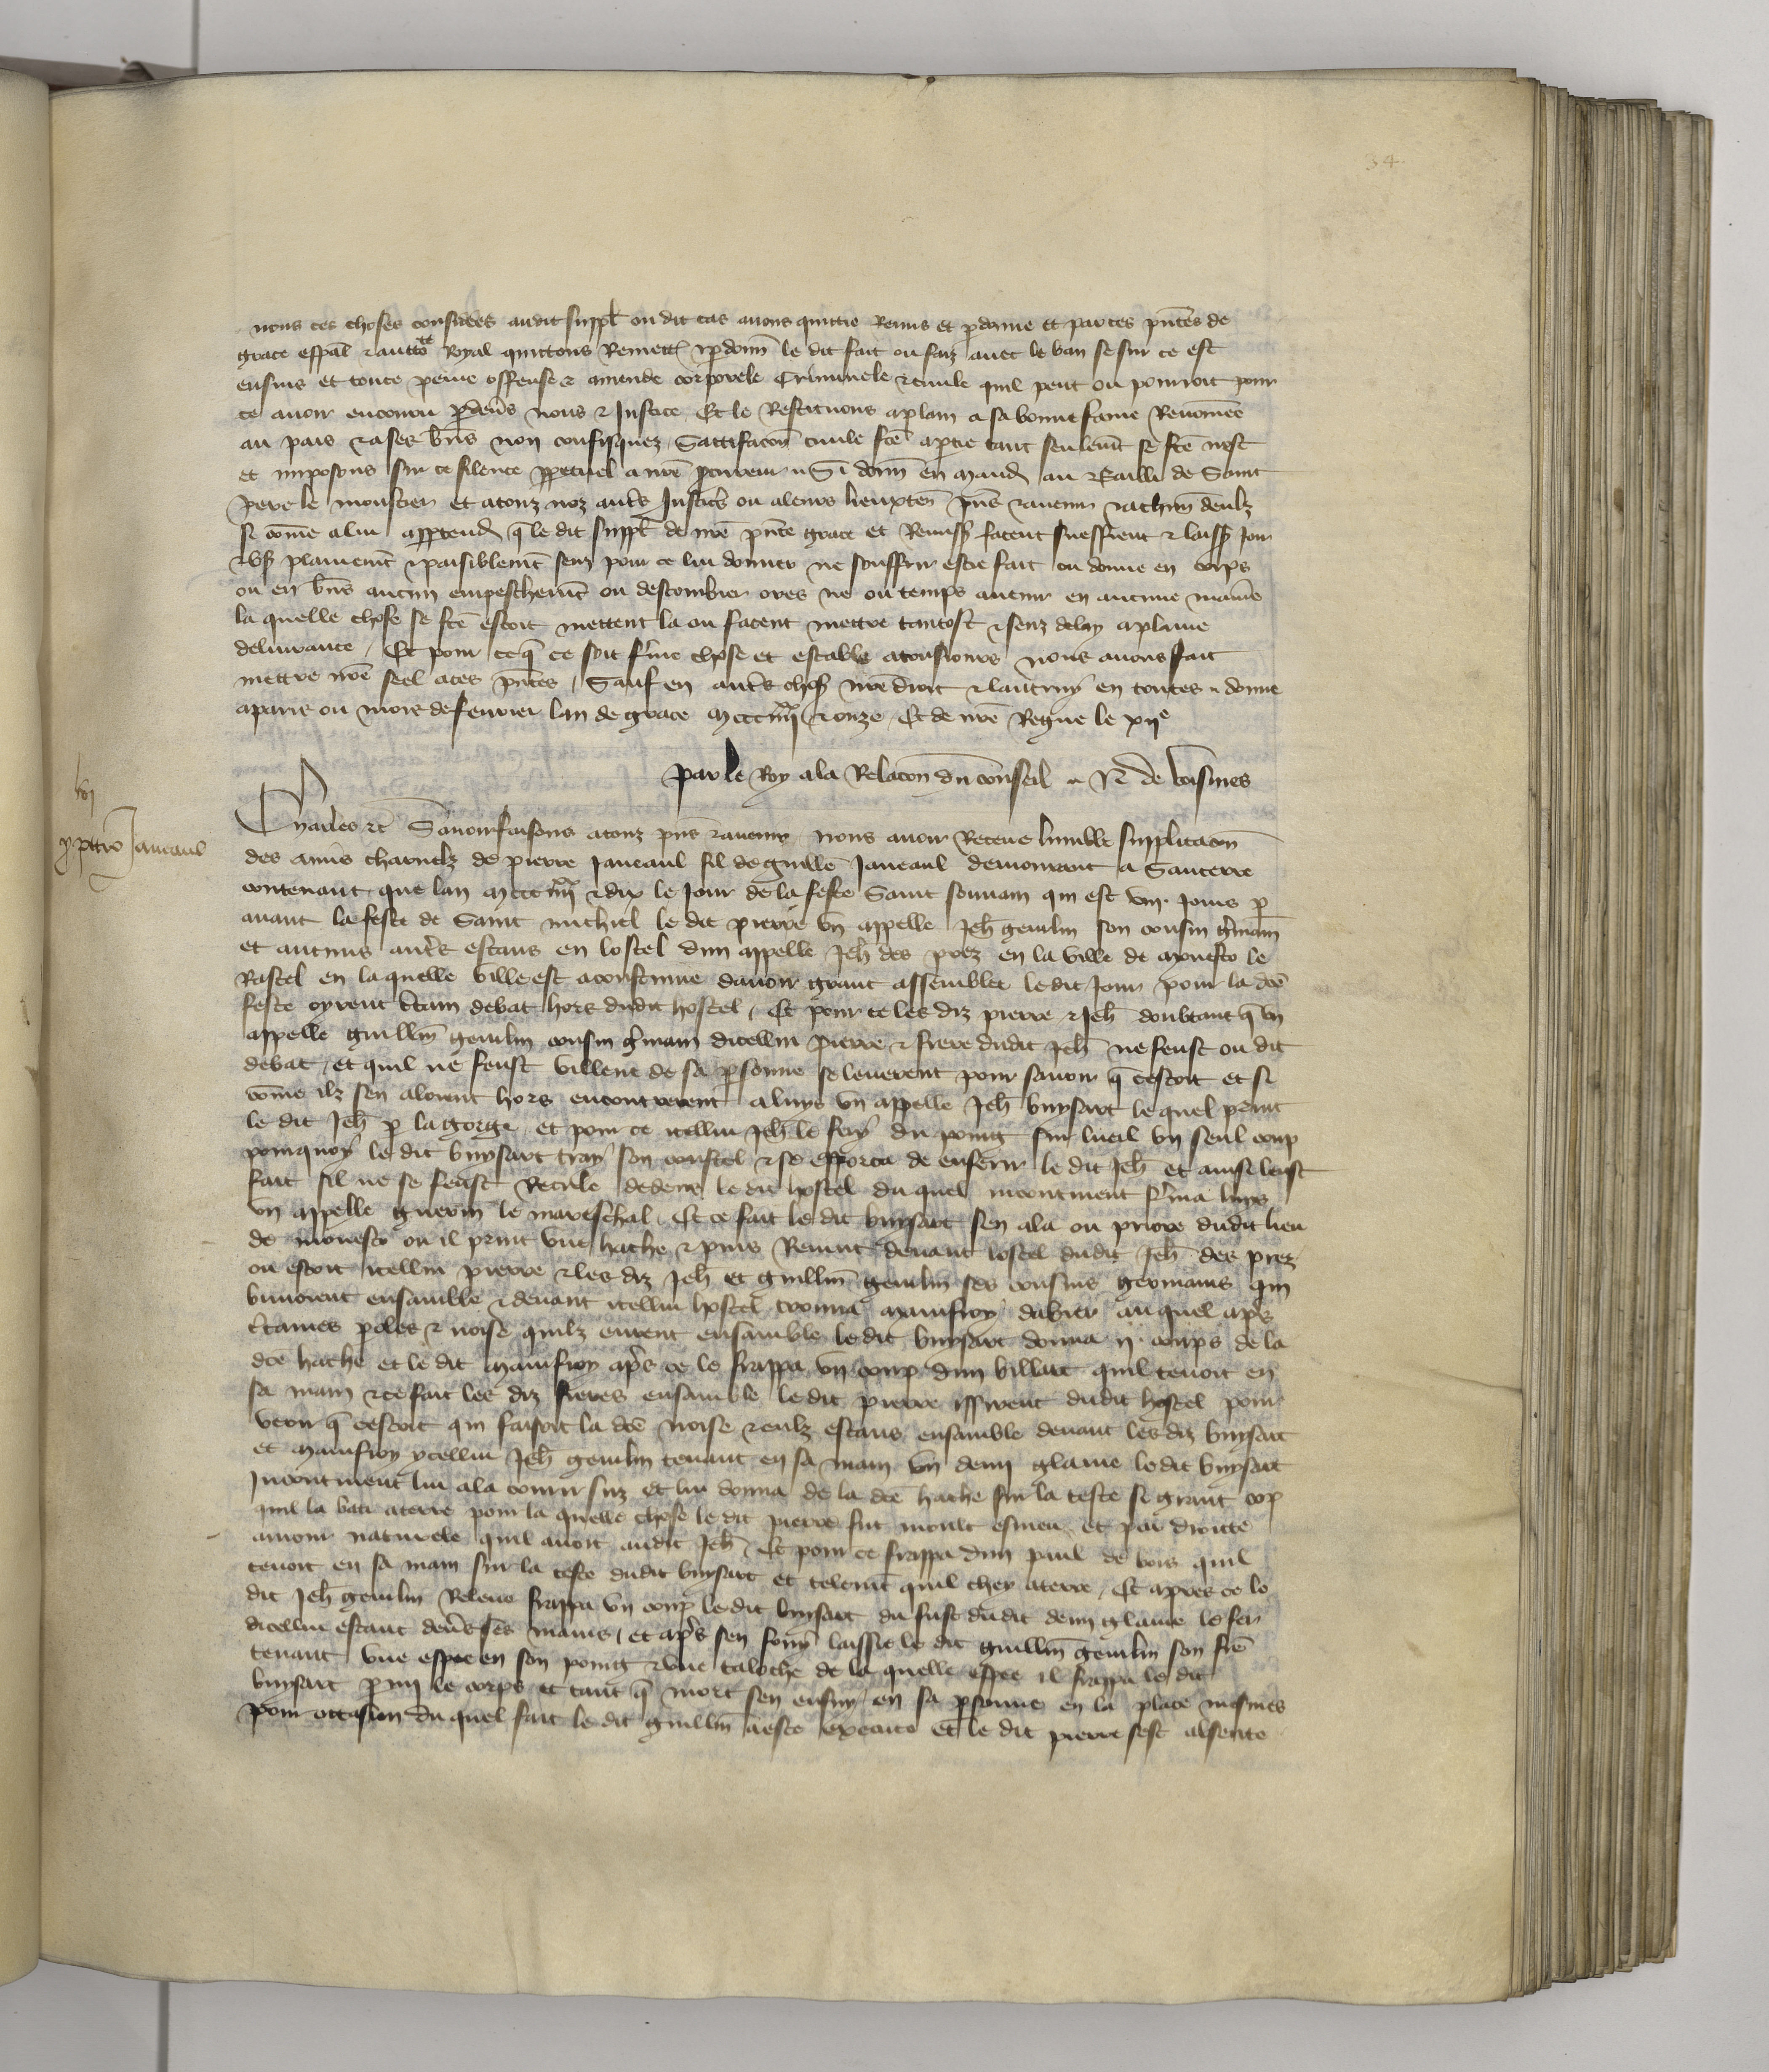 34
nous ces choses considerees audit suppl̃ ou dit cas avons quittie Remis et ꝑdonne et par ces pñtes de
grace esp̃al ⁊ auctõte Royal quittons Remett̃ ⁊ ꝑdonñ le dit fait ou faiz avec le ban se sur ce est
ensuis et toute peine offense ⁊ amende corporele Criminele ⁊ civile quil peut ou pourroit pour
ce avoir encouru ꝑ devs̃ nous ⁊ Justice Et le Restituons a plain a sa bonne fame Renõmee
au pais ⁊ a ses bñs non confisquez Sattifacõn civile fc̃e a ꝑtie tant seulemt̃ se fc̃e nest
et imposons sur ce silence ꝑpetuel a nr̃e ꝓcureur Si donñ en mand̃ au Bailli de Saint
pere le moustier et a touz noz autr̃s Justiciers ou a leurs lieuxten̄ pñs ⁊ avenir ⁊ a chun̄ deulx
si cõme a lui apptend̃ q̃ le dit suppl̃ de nr̃e pñte grace et Remiss̃ facent sueffrent ⁊ laiss̃ Joir
⁊ us̃ plainemt̃ ⁊ paisiblemt̃ senz pour ce lui donner ne souffrir estre fait ou donne en corps
ou en bñs aucun empeschemt̃ ou destourbier ores ne ou temps avenir en aucune manie
la quelle chose se fc̃e estoit mettent la ou facent mettre tantost ⁊ senz delay a plaine
delivrance / Et pour ce q̃ ce soit ferme chose et estable a tousjours nous avons fait
mettre nr̃e seel a ces pñtes / Sauf en autr̃s chos̃ nr̃e droit ⁊ lautruy en toutes donne
a paris ou mois de fevrier lan de grace mil ccc iiii xx ⁊ onze Et de nr̃e Regne le xiie
par le Roy a la Relacõn du conseil N de voisines
lvj
ꝓ petro Janeaul
Charles ⁊c̃ Savoir faisons a touz pñs ⁊ avenir nous avoir Receue lumble supplicacõn
des amis charnelz de pierre Janeaul fil de guillẽ Janeaul demourant a Sancerre
contenant que lan mil ccc iiii xx ⁊ dix le Jour de la feste Saint qui est viii Jours ꝑ
avant la feste de Saint michiel le dit pierre un appelle Jeh̃ geulin son cousin germain
et aucuns autr̃s estans en lostel dun appelle Jeh̃ des prez en la ville de le
Rastel en la quelle ville est acoustume davoir grant assemblee le dit Jour pour la dc̃e
feste oyrent c̃tain debat hors dudit hostel / Et pour ce les diz pierre ⁊ Jeh̃ doubtant q̃ un
appelle guillm̃ geulin cousin germain dicellui pierre ⁊ frere dudit Jeh̃ ne feust ou dit
debat / et quil ne feust villene de sa ꝑsonne se leverent pour savoir q̃ cestoit et si
cõme ilz sen aloient hors encontrerent a luys un appelle Jeh̃ buysart le quel print
le dit Jeh̃ ꝑ la gorge et pour ce icellui Jeh̃ le fery du poing sur lueil un seul coup
pour quoy le dit buysart tray son coustel ⁊ se efforca de en ferir le dit Jeh̃ et ainsi leust
fait sil ne se feust Recule dedens le dit hostel du quel incontinent ferma luys
un appelle guerin le mareschal / Et ce fait le dit buysart sen ala ou priore dudit lieu
de ou il print une hache ⁊ puis Revint devant lostel dudit Jeh̃ des prez
ou estoit icellui pierre ⁊ les diz Jeh̃ et guillm̃ geulin ses cousins germains qui
buvoient ensamble ⁊ devant icellui hostel trouva mainfroy auquel apr̃s
c̃taines paroles ⁊ noise quilz eurent ensamble le dit buysart donna ii coups de la
dc̃e hache et le dit mainfroy apr̃s ce le frappa un coup dun billart quil tenoit en
sa main ⁊ ce fait les diz freres ensamble le dit pierre issirent dudit hostel pour
veoir q̃ cestoit qui faisoit la dc̃e noise ⁊ eulx estans ensamble devant les diz buysart
et mainfroy ycellui Jeh̃ geulin tenant en sa main un demi glaive le dit buysart
incontinent lui ala courir suz et lui donna de la dc̃e hache sur la teste si grant cop
quil la bati a terre pour la quelle chose le dit pierre fut moult esmeu et par droite
amour naturele quil avoit audit Jeh̃ / Et pour ce frappa dun paul de bois quil
tenoit en sa main sur la teste dudit buysart et telemt̃ quil chey a terre / Et apres ce le
dit Jeh̃ geulin Releve frappa un coup le dit buysart du fust dudit demi glaive le fer
dicellui estant devs̃ ses mains / et apr̃s sen fouy laissie le dit guillm̃ geulin son fr̃e
tenant une espee en son poing ⁊ une taloche de la quelle espee il frappa le dit
buysart ꝑmi le corps et tant q̃ mort sen ensuy en sa ꝑsonne en la place mesmes
pour occasion du quel fait le dit guillm̃ a este execute et le dit pierre sest absente